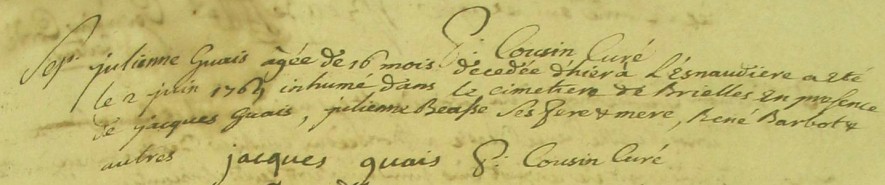 P: Cousin Curé
Sep. julienne Guais agée de 16 mois decedée d'hier à L'Esnaudiere a été
le 2 juin 1764 inhumé dans le cimetiere de Brielles En presence
de jacques Guais, julienne Beasse ses pere & mere, René Barbot &
autres jacques guais P: Cousin Curé